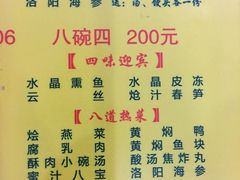 洛阳海参 送：汤、馒头各一份
06 八碗四 200元
【四味迎宾】
水晶熏鱼 水晶皮冻
云丝 炝汁春笋
【八道热菜】
烩燕菜 黄焖鸭
腐乳肉 黄焖鱼块
酥肉小碗汤 酸汤焦炸丸
蜜汁八宝 洛阳海参